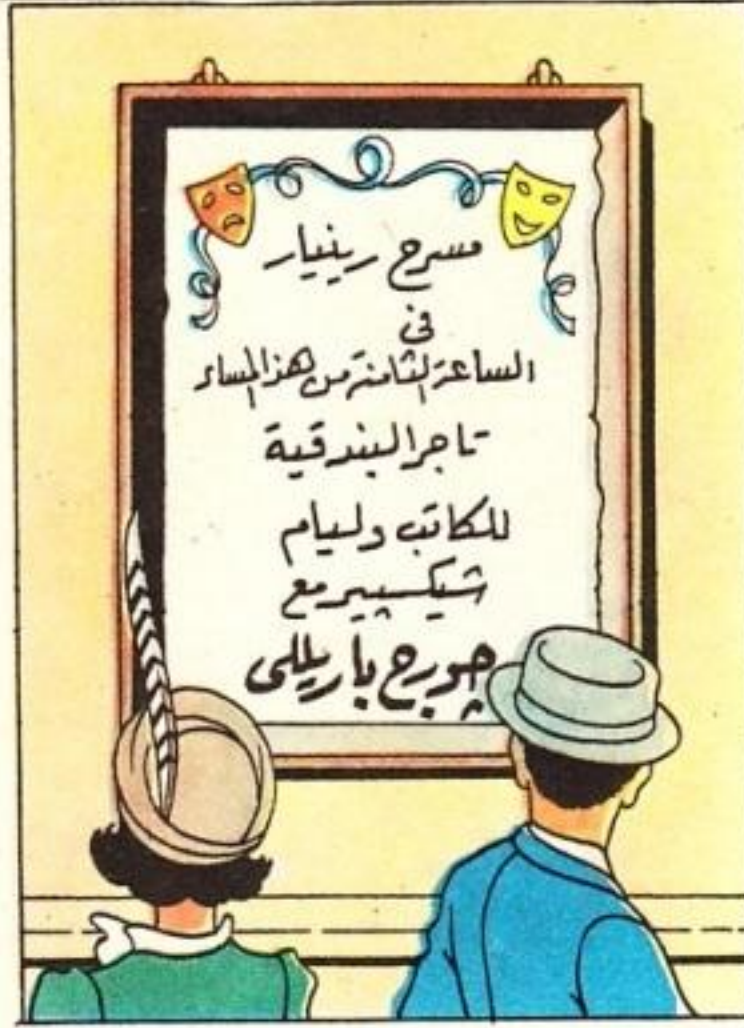 مسرح رينيار
في
الساعة الثامنة من هذا المساء
تاجر البندقية
للكاتب وليام
شيكسبير مع
چورج باريللى